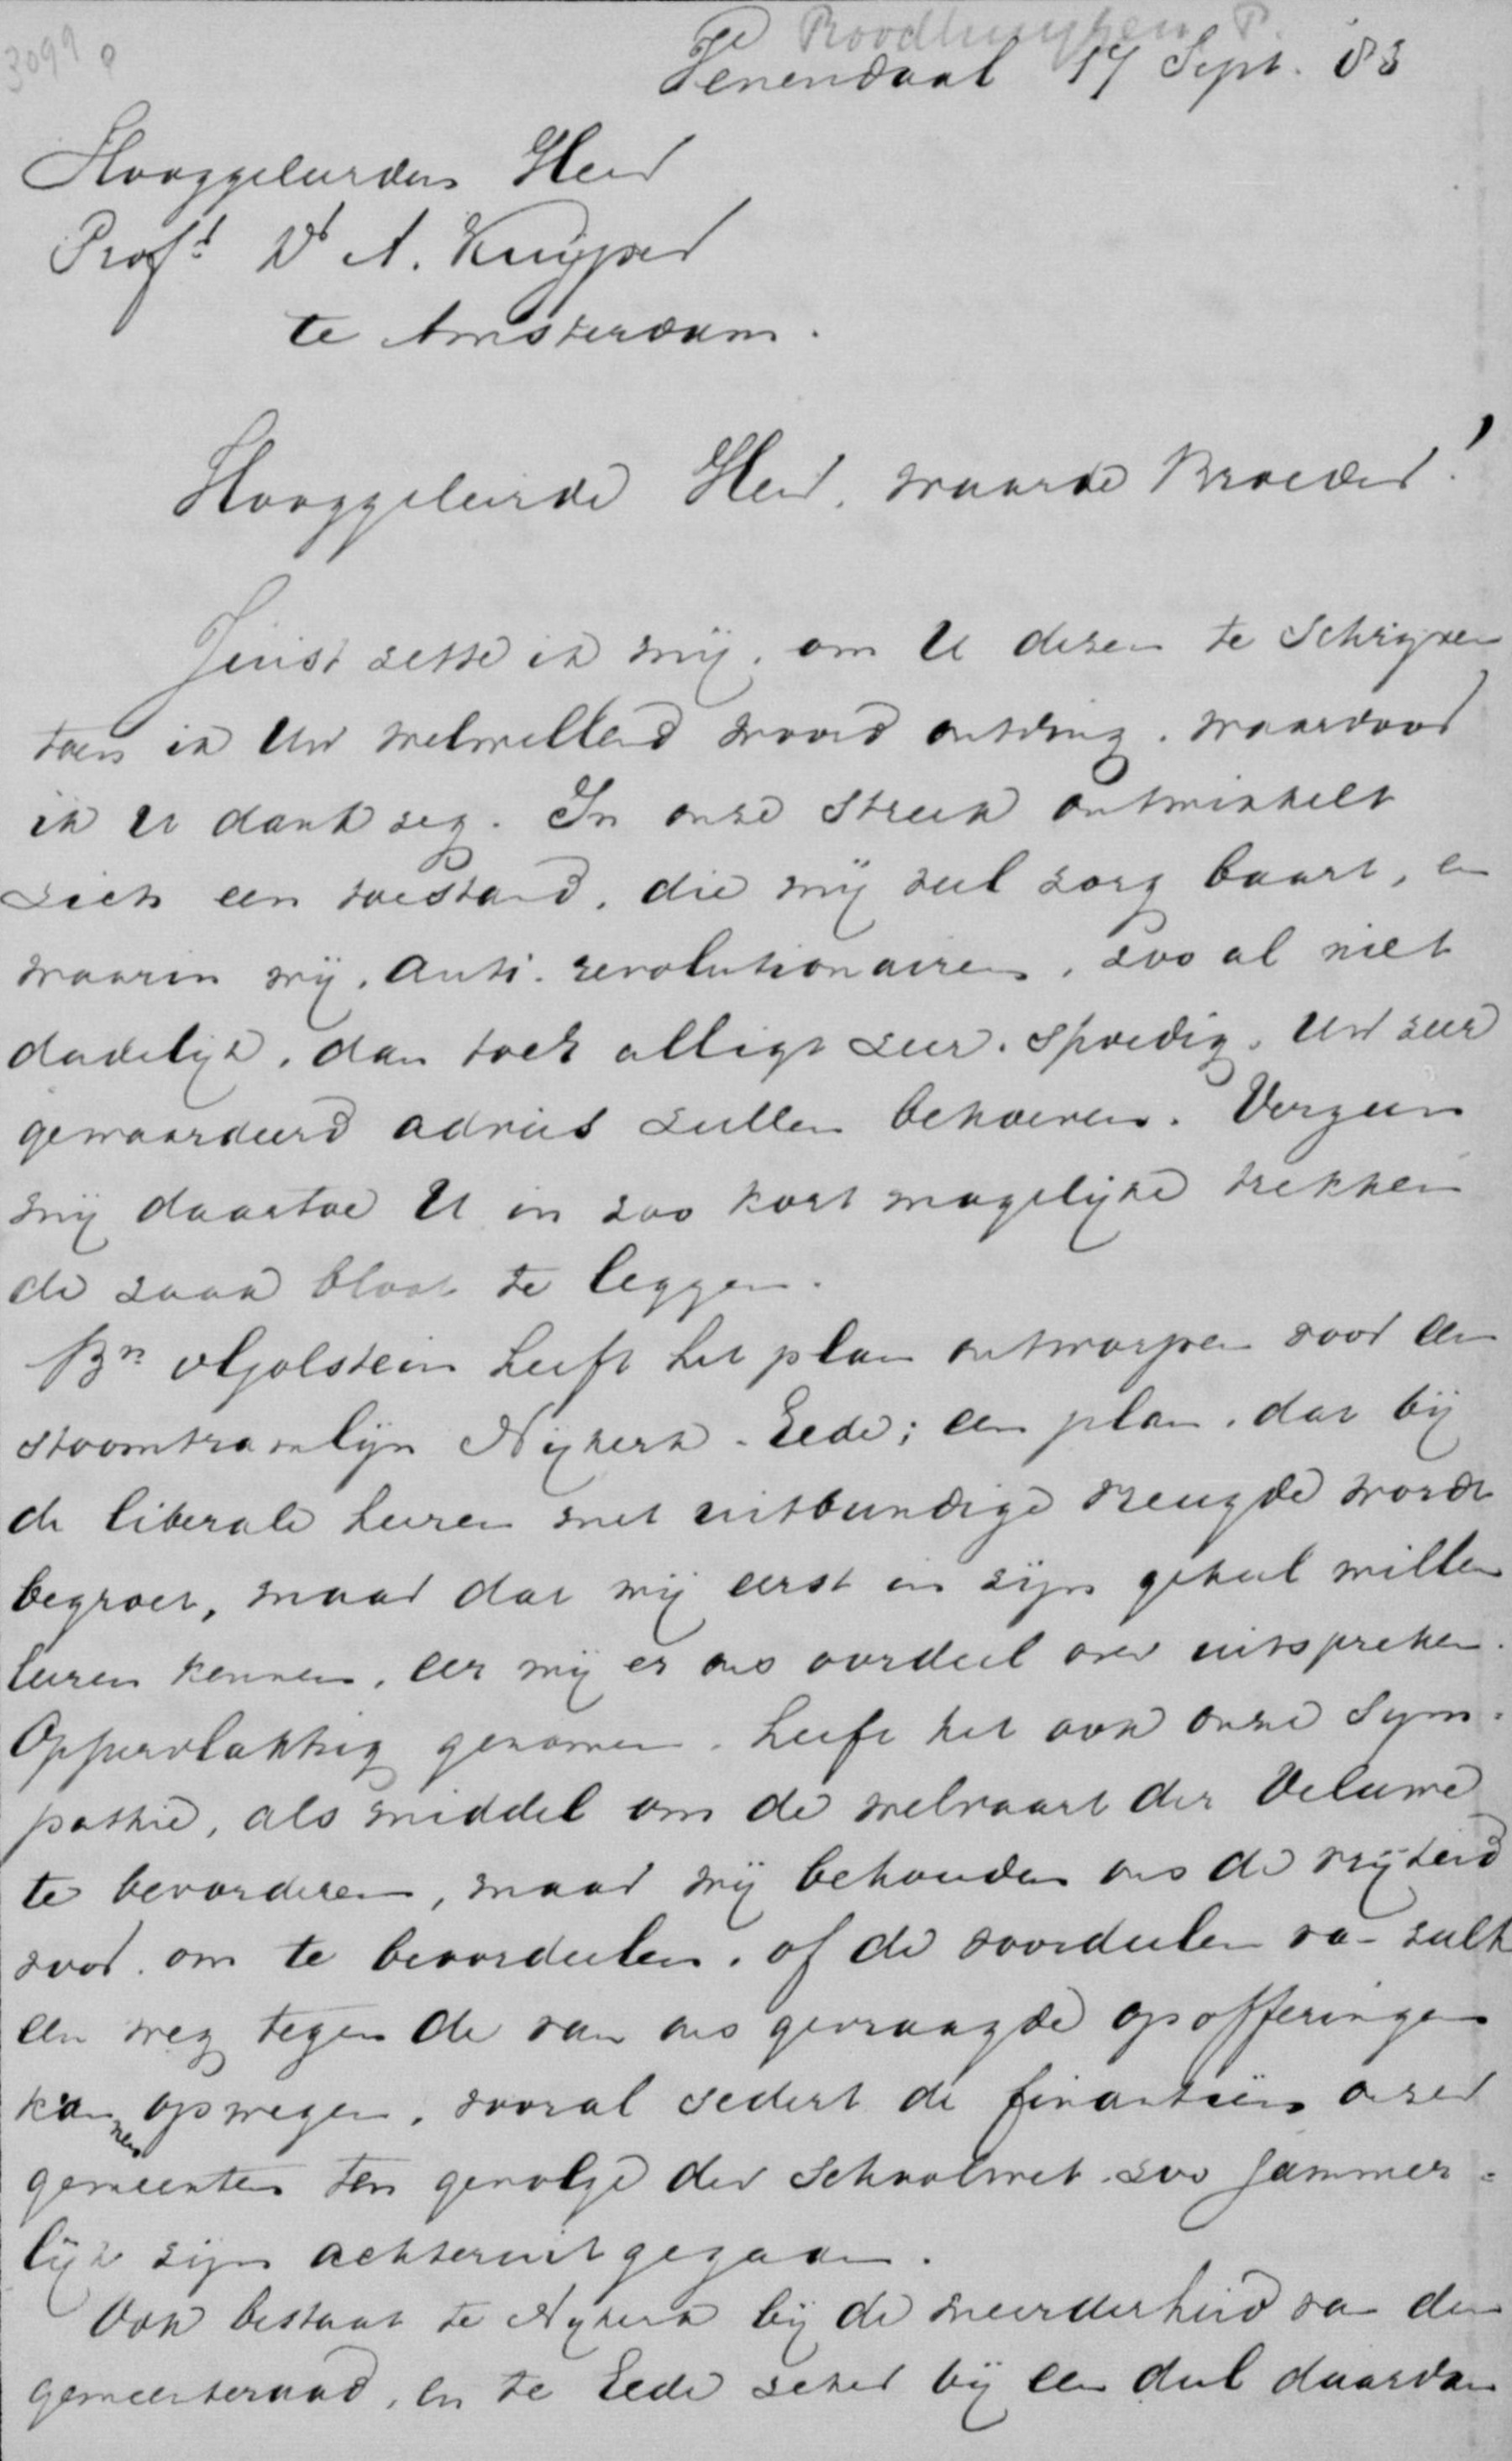 3099
Roodhuyzen P.
Venendaal 17 Sept. 83
Hooggeleerden Heer
Profr Dr A. Kuyper
te Amsterdam.
Hooggeleerde Heer, waarde Broeder!
Juist zette ik mij, om U dezen te schrijven
toen ik Uw welwillend woord ontving, waarvoor
ik U dank zeg. In onze streek ontwikkelt
zich een toestand, die mij veel zorg baart, en
waarin wij, anti-revolutionairen, zoo al niet
dadelijk, dan toch alligt zeer spoedig, Uw zeer
gewaardeerd advies zullen behoeven. Vergun
mij daartoe U in zoo kort mogelijke trekken
de zaak bloot te leggen.
Bn v Golstein heeft het plan ontworpen voor een
stoomtramlijn Nijkerk-Eede; een plan, dat bij
de liberale heeren met uitbundige vreugde wordt
begroet, maar dat wij eerst in zijn geheel willen
leeren kennen, eer wij er ons oordeel over uitspreken.
Oppervlakkig genomen, heeft het ook onze sym-
pathie, als middel om de welvaart der Veluwe
te bevorderen, maar wij behouden ons de vrijheid
voor, om te beoordeelen, of de voordeelen van zulk
een weg tegen de van ons gevraagde opofferingen
kunnen opwegen, vooral sedert de finantiën onzer
gemeenten ten gevolge der schoolwet zoo jammer-
lijk zijn achteruitgegaan.
Ook bestaat te Nijkerk bij de meerderheid van den
gemeenteraad, en te Eede zeker bij een deel daarvan